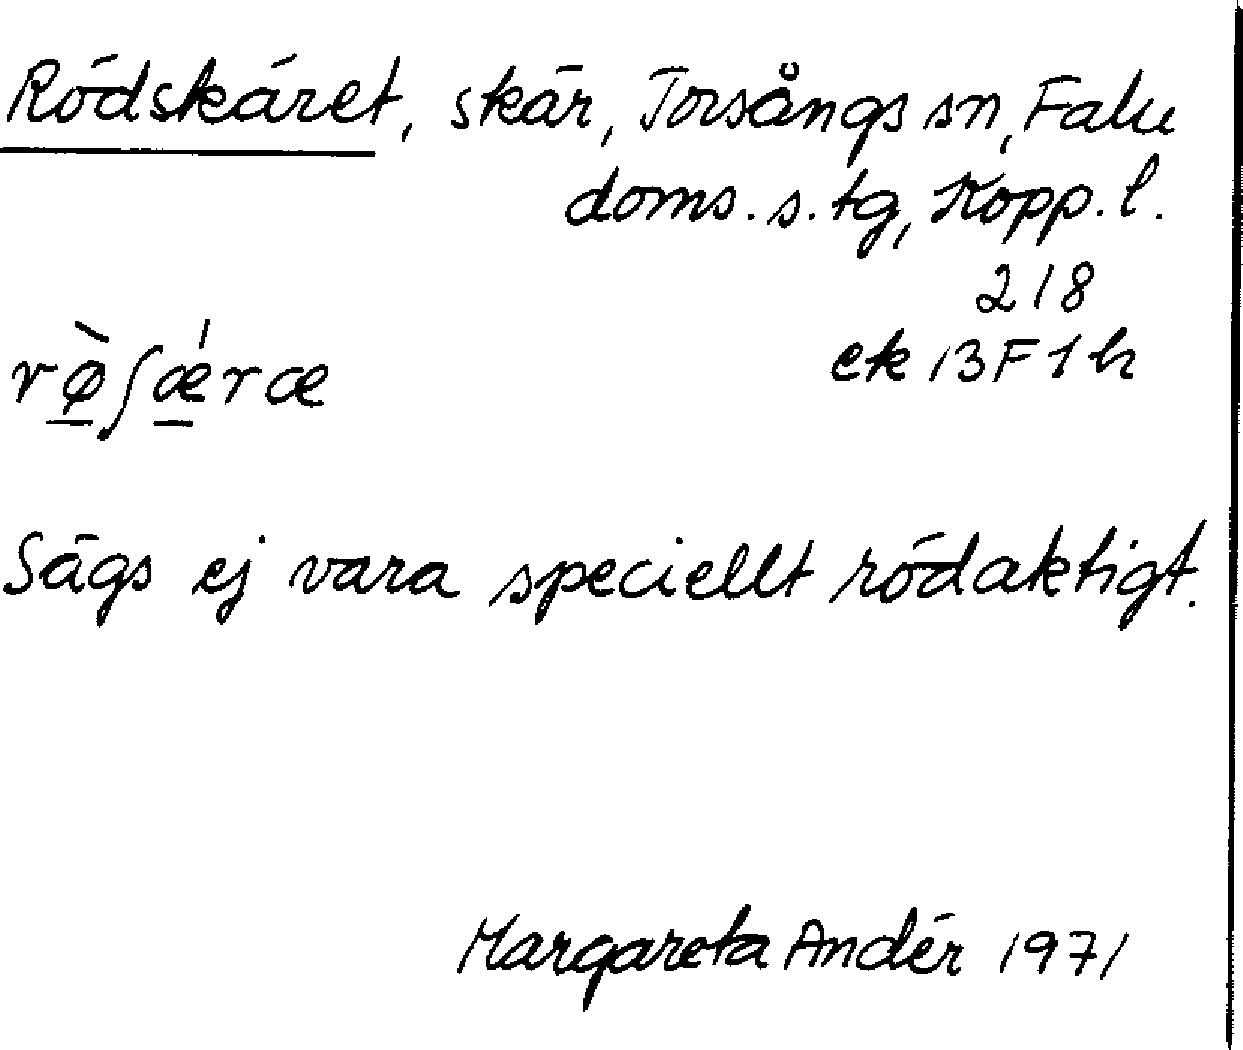 Rödskäret, skär, Torsångs sn, Falu
doms. s. tg, Kopp. l.
218
ek 13F1h
rø̱̀ʃǽ̱ræ
Sägs ej vara speciellt rödaktigt.
Margareta Andér 1971